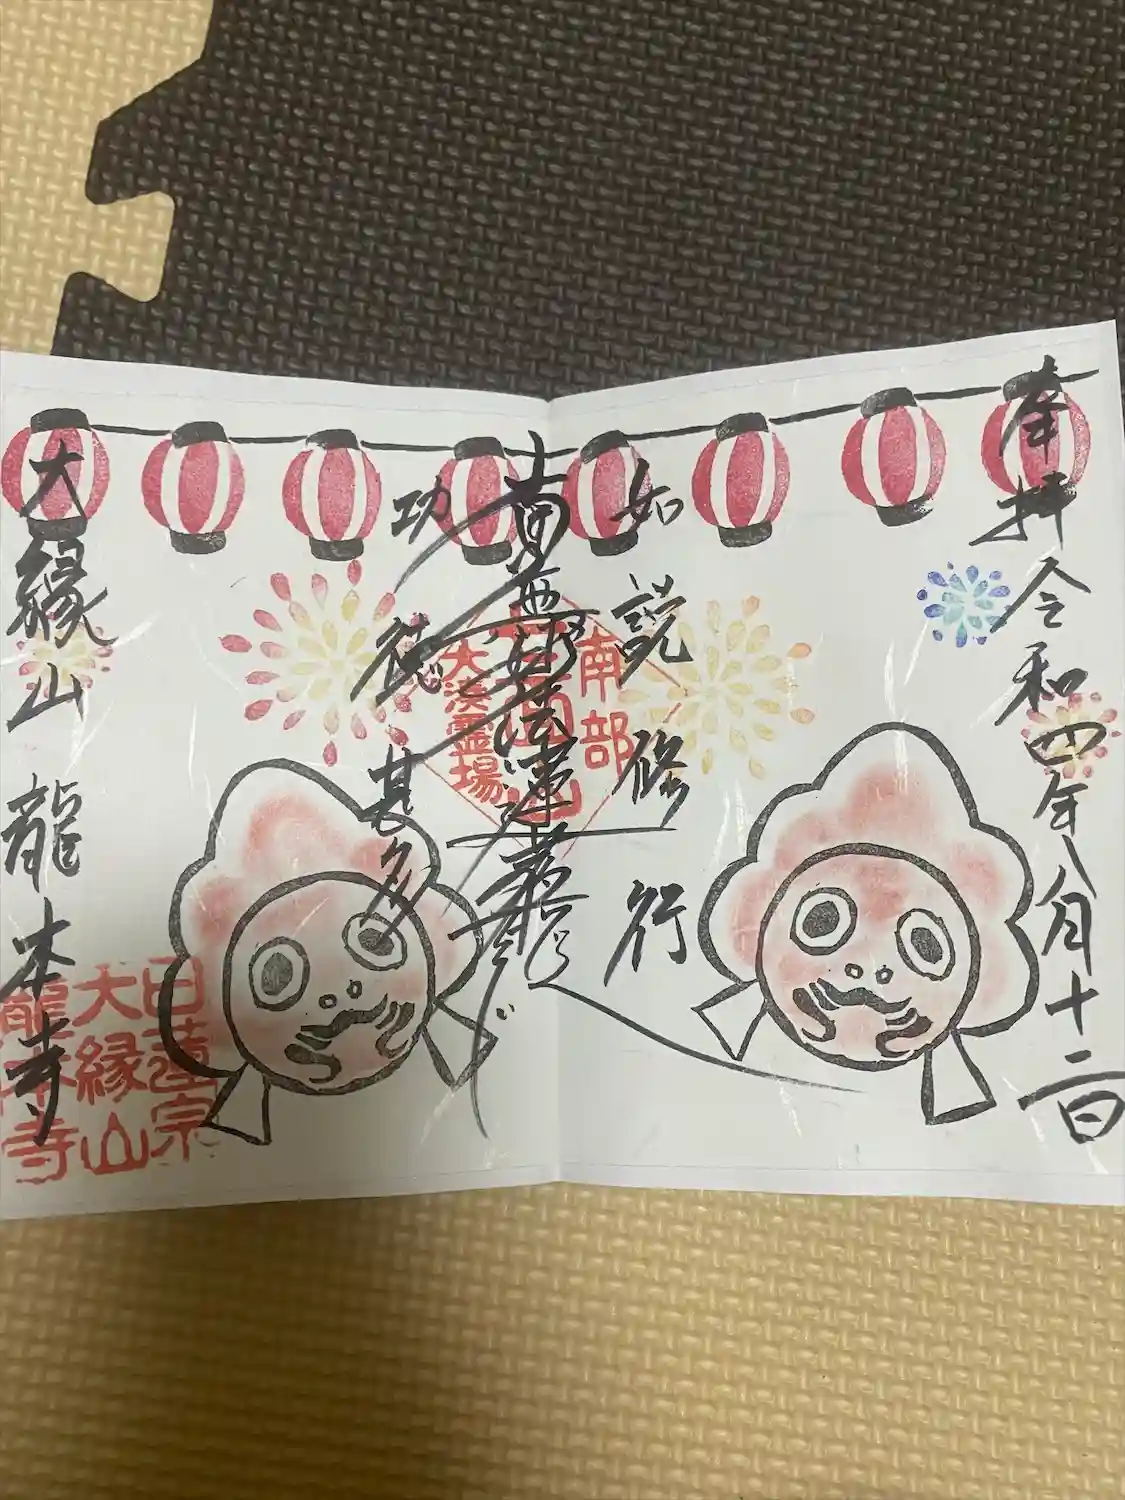 奉拝 令和四年八月十二日
如説修行
南無妙法蓮華経
功徳甚多
大縁山 龍本寺
南部
大湊霊場
日蓮宗
大縁山
龍本寺